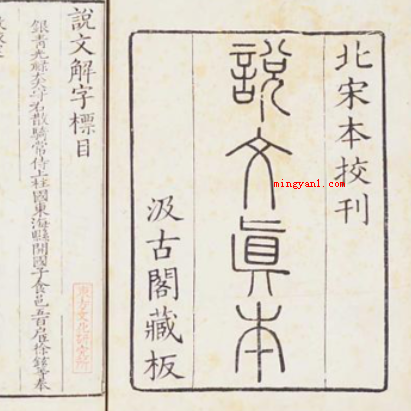 北宋本挍刊
說文眞本
汲古閣藏板
mingyan1.com
說文解字標目
銀青光祿大夫守右散騎常侍上柱國東海縣開國子食邑五百戶臣徐鉉等奉
東方文化研究所